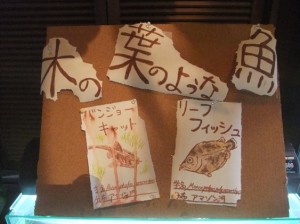 木の葉のような魚
バンジョー
キャット
リーフ
フィッシュ
アマゾン河